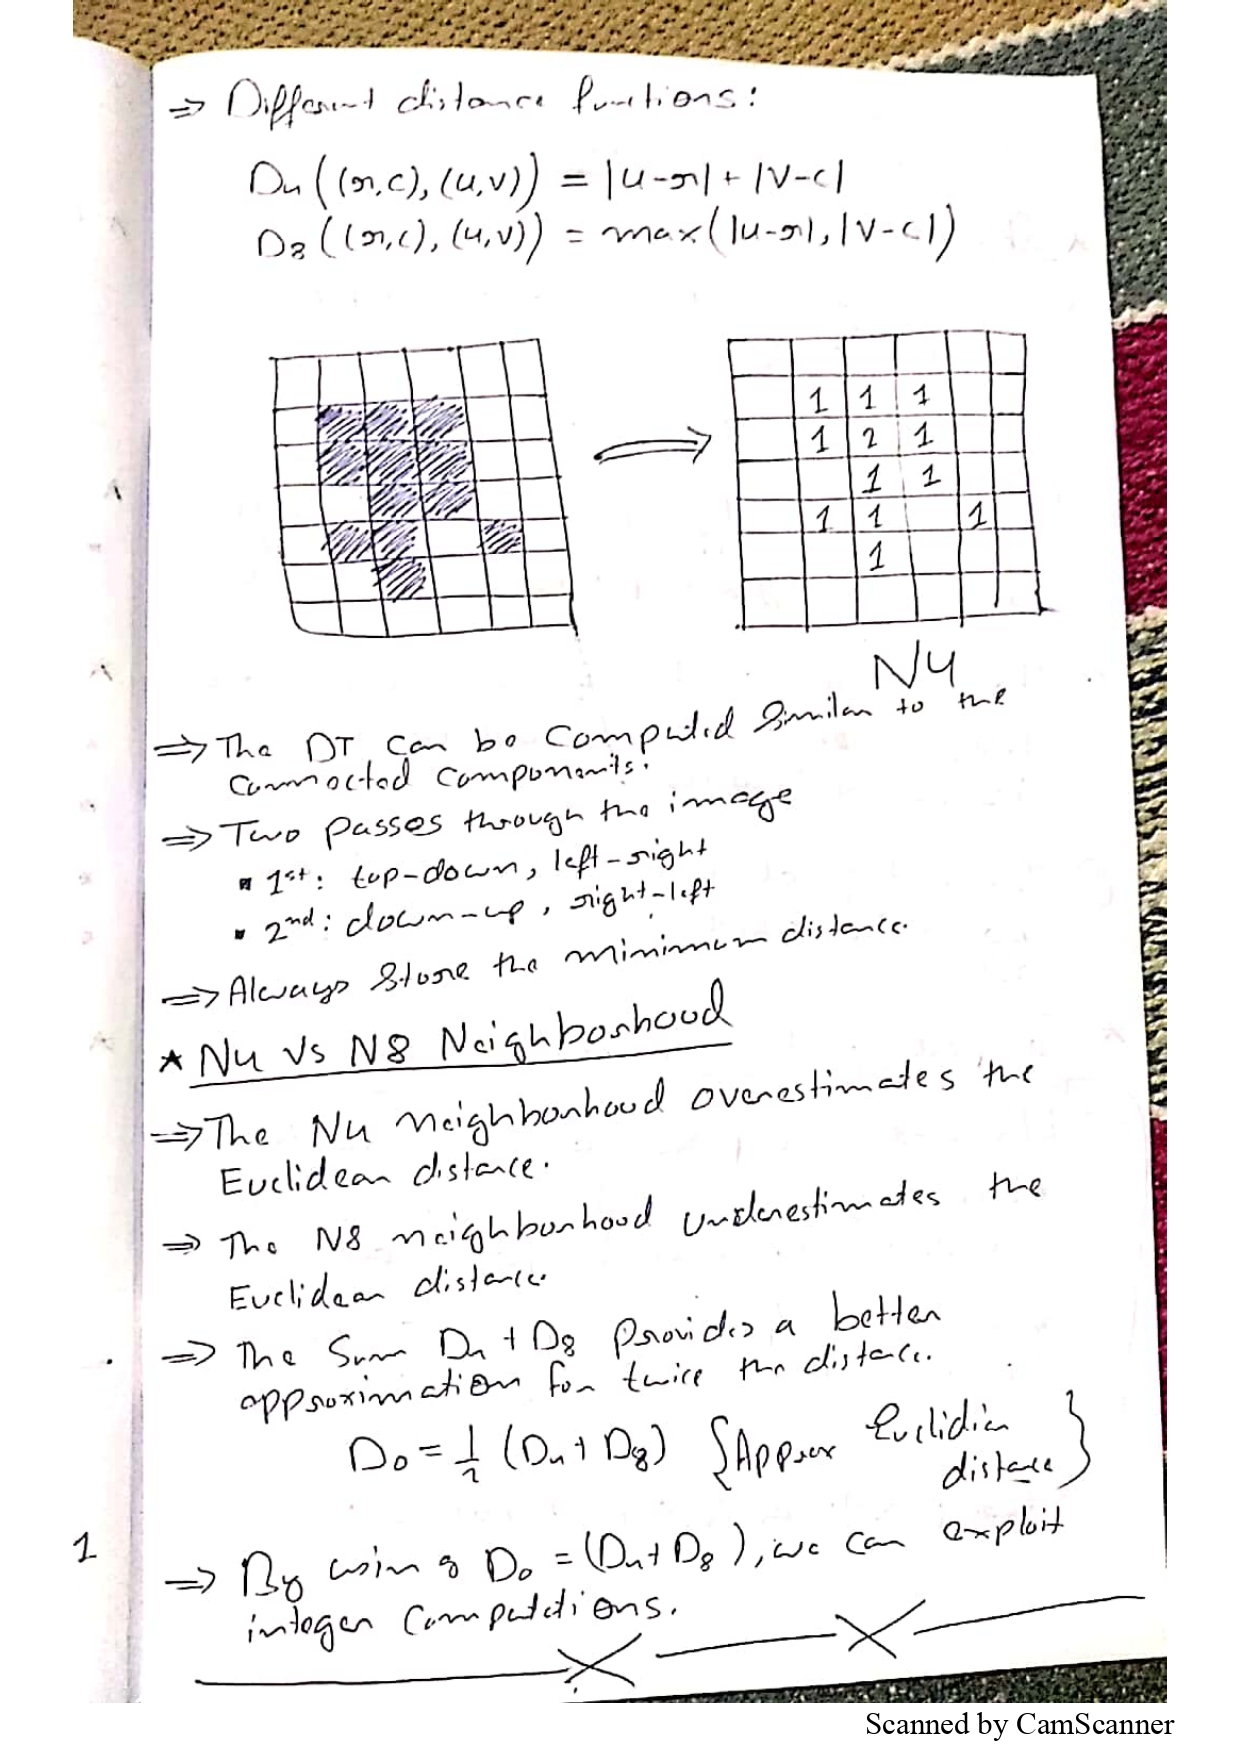 ⇒ Different distance functions:
D4((r,c),(u,v)) = |u-r|+|v-c|
D8((r,c),(u,v)) = max(|u-r|,|v-c|)
1 1 1
1 2 1
1 1
1 1 1
1
N4
⇒ The DT can be computed similar to the
connected components.
⇒ Two passes through the image
▪ 1st: top-down, left-right
▪ 2nd: down-up, right-left
⇒ Always store the minimum distance.
★ N4 Vs N8 Neighborhood
⇒ The N4 neighborhood overestimates the
Euclidean distance.
⇒ The N8 neighborhood underestimates the
Euclidean distance.
⇒ The Sum D4 + D8 provides a better
approximation for twice the distance.
D0 = 1/2 (D4 + D8) {Approx Euclidian
distance}
⇒ By using D0 = (D4 + D8), we can exploit
integer computations.
1
Scanned by CamScanner